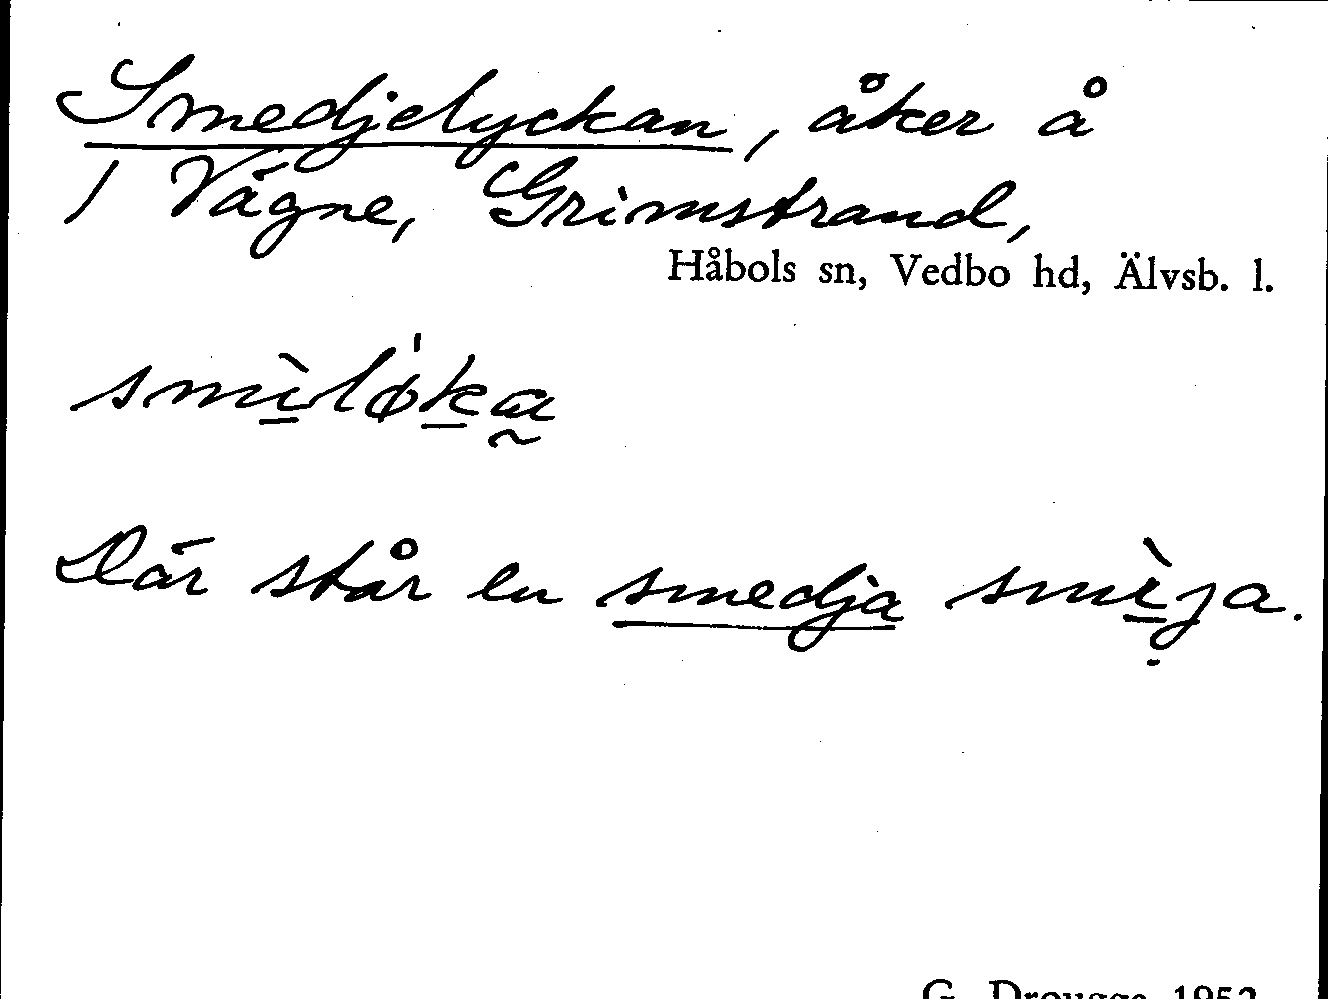 Smedjelyckan, åker å
1 Vägne, Grimstrand,
Håbols sn, Vedbo hd, Älvsb. l.
smìlø̍ka̰
Där står en smedja smìja.
G. Drougge 1952